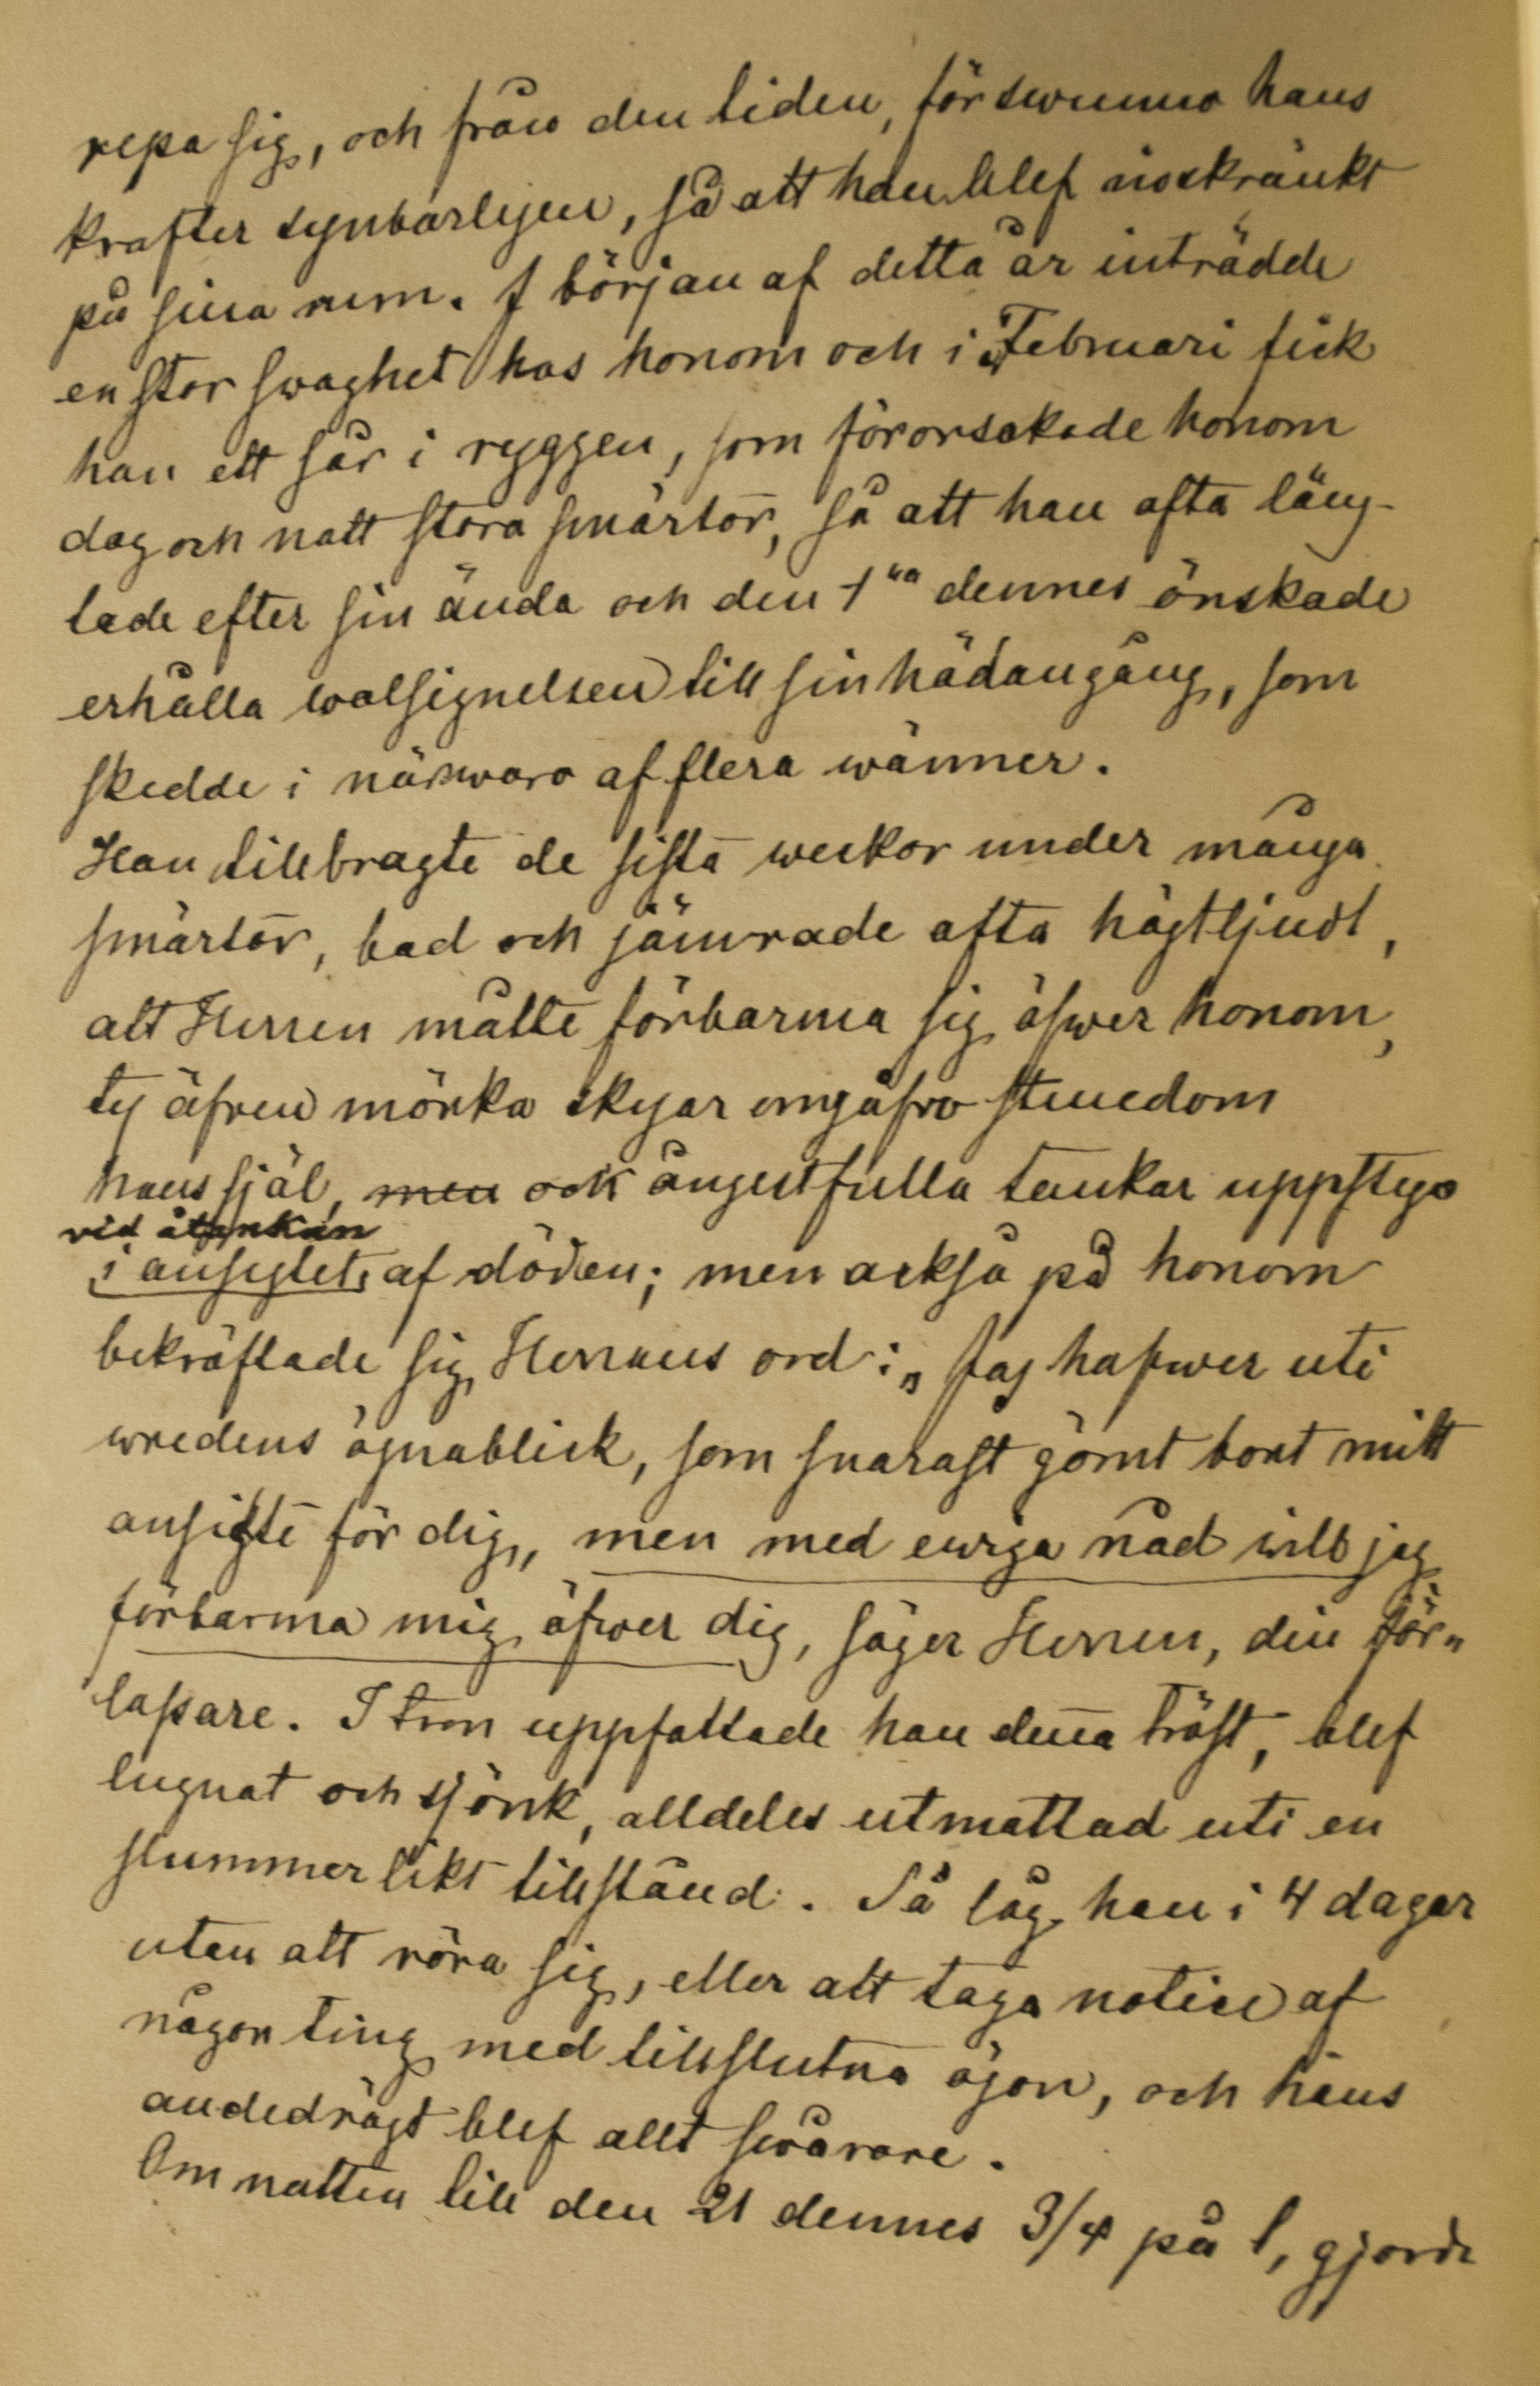 repa sig, och från den tiden, förswunno hans
krafter synbarligen, så att han blef inskränkt
på sina rum. I början af detta år inträdde
en stor swaghet hos honom och i Februari fick
han ett sår i ryggen, som förorsakade honom
dag och natt stora smärtor, så att han ofta läng-
tade efter sin ända och den 1ᵃ dennes önskade
erhålla walsignelsen till sin hädangång, som
skedde i närwaro af flera wänner.
Han tillbragte de sista weckor under många
smärtor, bad och jämrade ofta högtljudt,
att Herren måtte förbarma sig öfwer honom,
ty äfwen mörka skyar omgåfvo stundom
hans själ, men ock ångestfulla tankar uppstego
vid åtankan
i ansigtet af döden; men också på honom
bekräftade sig Herrans ord: „Jag hafwer uti
wredens ögnablick, som snarast gömt bort mitt
ansigte för dig, men med ewiga nåd will jag
förbarma mig öfwer dig, säger Herren, din för„
lossare. I tron uppfattade han den̄a tröst, blef
lugnat och sjönk, alldeles utmattad uti en
slummer likt tillstånd. Så låg han i 4 dagar
utan att röra sig, eller att taga notice af
någon ting med tillslutna ögon, och hans
andedrägt blef allt swårare.
Om natten till den 21 dennes 3/4 på 1, gjorde